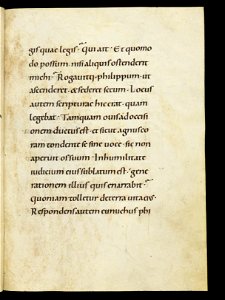 gis quae legis. Qui ait. Et quomo
do possum. nisi aliquis ostenderit
mihi. Rogavitq; philippum. ut
ascenderet. & sederet secum. Locus
autem scripturae hic erat. quam
legebat. Tamquam ovis ad occisi
onem ductus est. et sicut agnus co
ram tondente se sine voce. sic non
aperuit os suum. In humilitate
iudicium eius sublatum est. gene
rationem illius quis enarrabit.
quoniam tolletur de terra vita eius.
Respondens autem eunuchus phi